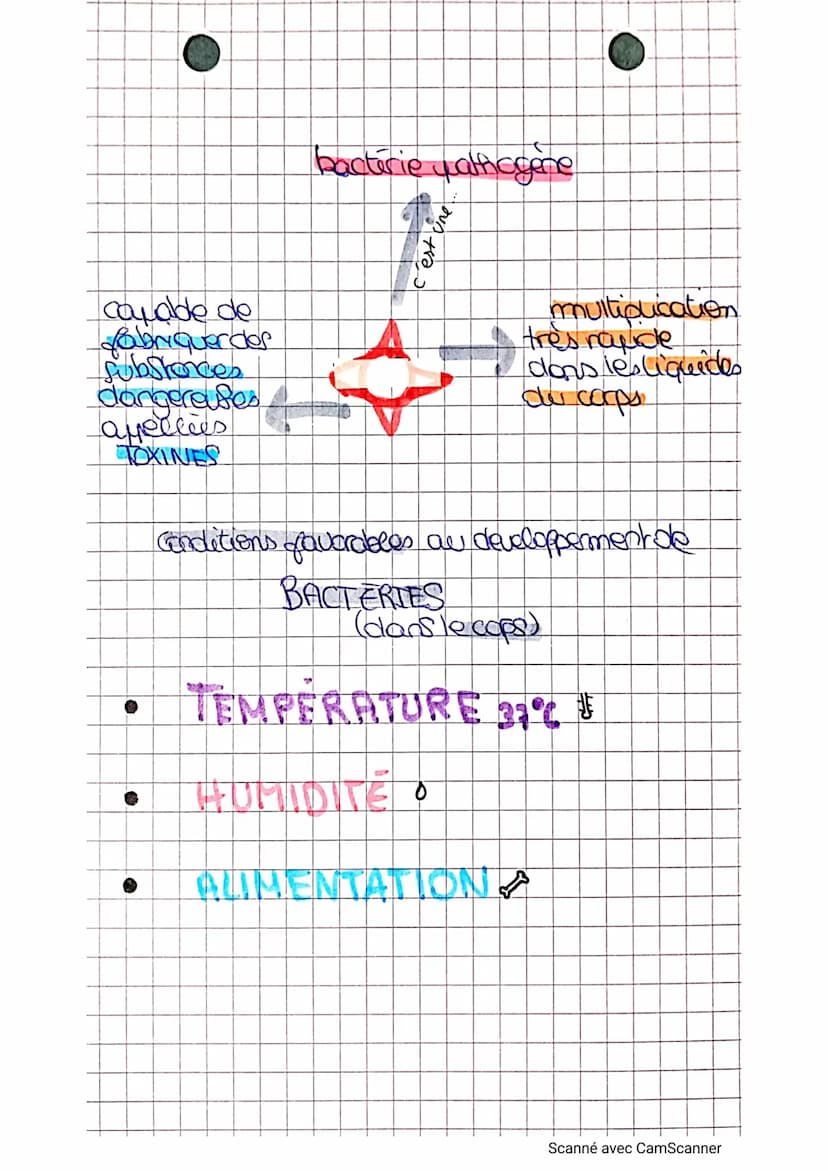 bactérie pathogène
c'est une...
capable de
fabriquer des
substances
dangereuses
appelées
TOXINES
multiplication
très rapide
dans les liquides
du corps
conditions favorables au developpement de
BACTERIES
(dans le cops)
• TEMPÉRATURE 37°C
• HUMIDITÉ
• ALIMENTATION
Scanné avec CamScanner